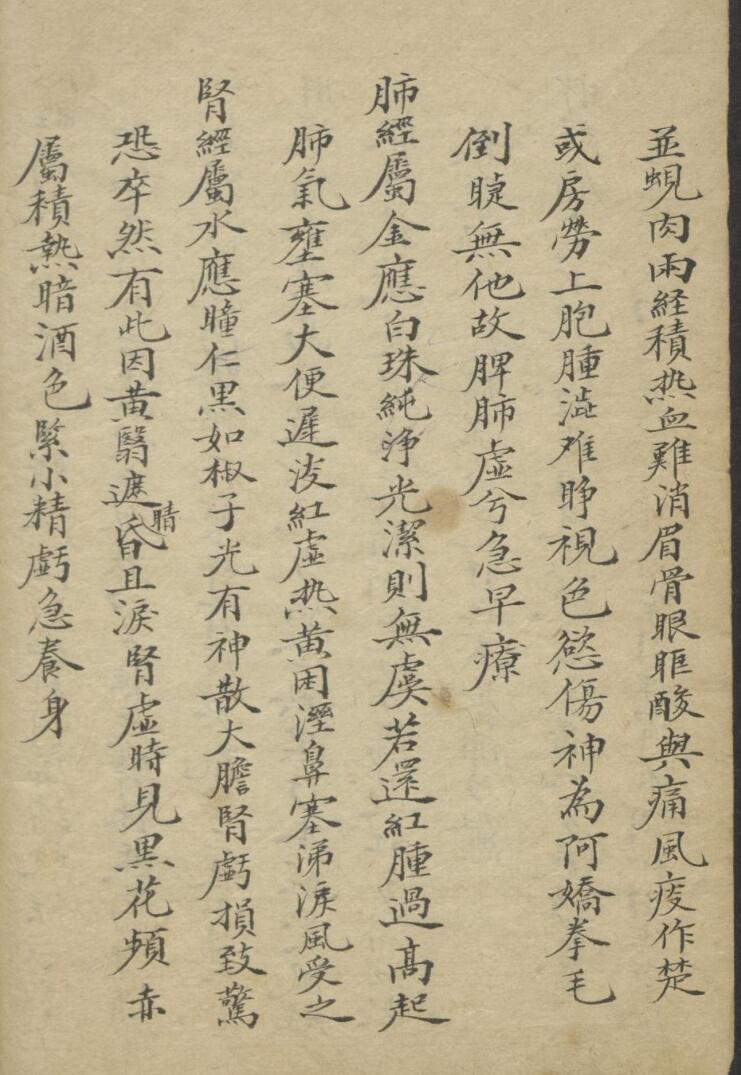 並蜆肉兩経積热血難消眉骨眼眶酸與痛風疫作楚
或房勞上胞腫澁难睁視色慾傷神為阿嬌拳毛
倒睫無他故脾肺虛兮急早療
肺經屬金應白珠純浄光潔則無虞若還紅腫過高起
肺氣壅塞大便遲淡紅虛热黄因溼鼻塞涕淚風受之
腎經屬水應瞳仁黒如椒子光有神散大膽腎虧損致驚
恐卒然有此因黄翳遮睛昏且淚腎虛時見黒花頻赤
屬積熱暗酒色緊小精虧急養身